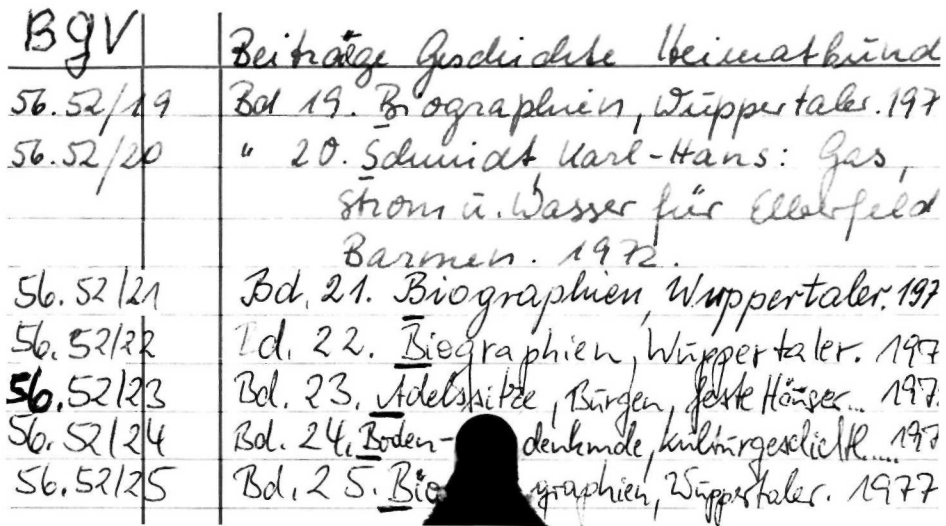 BgV Beiträge Geschichte Heimatkund
56.52/19 Bd 19. Biographien, Wuppertaler. 197
56.52/20 " 20. Schmidt, Karl-Hans: Gas,
Strom u. Wasser für Elberfeld
Barmen. 1972.
56.52/21 Bd. 21. Biographien, Wuppertaler. 197
56.52/22 Bd. 22. Biographien, Wuppertaler. 197
56.52/23 Bd. 23. Adelssitze, Burgen, feste Häuser... 197
56.52/24 Bd. 24. Boden-denkmde, kulturgeschichtl.... 197
56.52/25 Bd. 25. Biographien, Wuppertaler. 1977